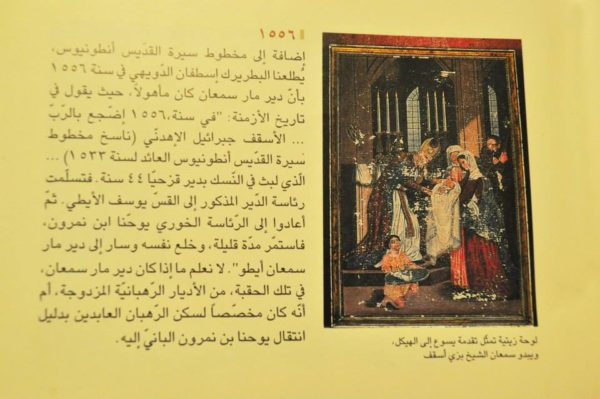 ١٥٥٦
إضافة إلى مخطوط سيرة القدّيس أنطونيوس،
يُطلعنا البطريرك إسطفان الدّويهي في سنة ١٥٥٦
بأنّ دير مار سمعان كان مأهولاً، حيث يقول في
تاريخ الأزمنة: "في سنة،١٥٥٦ إضّجع بالرّبّ
... الأسقف جبرائيل الإهدني (ناسخ مخطوط
سيرة القدّيس أنطونيوس العائد لسنة ١٥٣٣) ...
الّذي لبث في النّسك بدير قزحيّا ٤٤ سنة. فتسلّمت
رئاسة الدّير المذكور إلى القسّ يوسف الأيطي. ثمّ
أعادوا إلى الرّئاسة الخوري يوحنّا ابن نمرون،
فاستمّر مدّة قليلة، وخلع نفسه وسار إلى دير مار
سمعان أيطو". لا نعلم ما إذا كان دير مار سمعان،
في تلك الحقبة، من الأديار الرّهبانيّة المزدوجة، أم
أنّه كان مخصّصاً لسكن الرهبان العابدين بدليل
انتقال يوحنا بن نمرون البانيّ إليه.
لوحة زيتية تمثّل تقدمة يسوع إلى الهيكل،
ويبدو سمعان الشيخ بزي أسقف